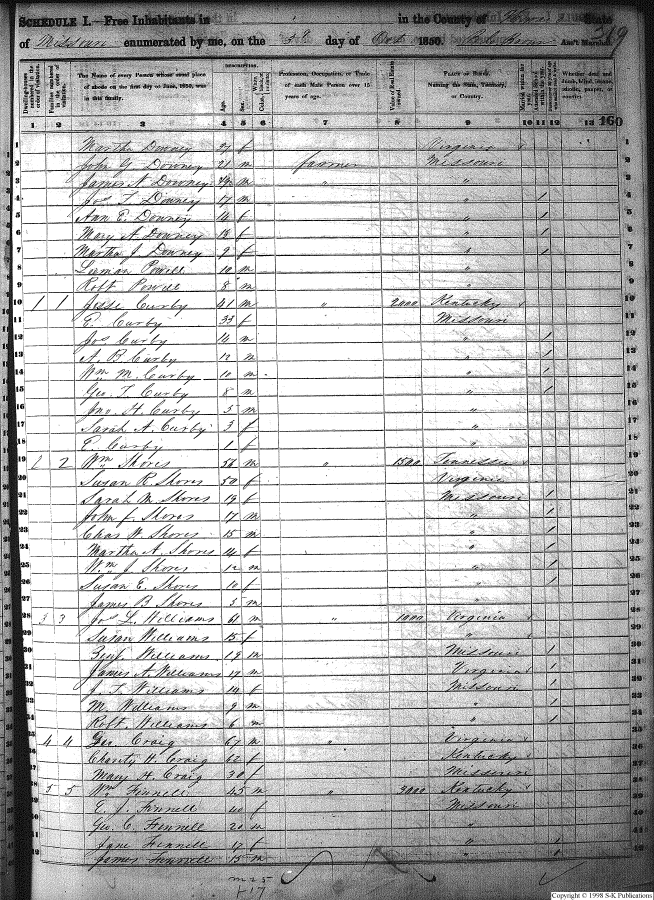 SCHEDULE I.—Free Inhabitants in in the County of State
of Missouri enumerated by me, on the day of 1850. Ass't Marshal.
369
Dwelling-houses numbered in the order of visitation.
Families numbered in the order of visitation.
The Name of every Person whose usual place of abode on the first day of June, 1850, was in this family.
DESCRIPTION.
Age.
Sex.
Profession, Occupation, or Trade of each Male Person over 15 years of age.
Value of Real Estate owned.
PLACE OF BIRTH. Naming the State, Territory, or Country.
Whether deaf and dumb, blind, insane, idiotic, pauper, or convict.
1 2 3 4 5 6 7 8 9 10 11 12 13 160
1 Martha Downey f Virginia
2 John G. Downey 21 m farmer Missouri
3 James A. Downey m " "
4 Jos T. Downey 17 m " 1
5 Ann E. Downey f " 1
6 Mary A. Downey f " 1
7 Martha J. Downey 9 f " 1
8 Powell 10 m "
9 Robt Powell 8 m "
10 1 1 Jesse Curby 41 m " 2000 Kentucky
11 E. Curby 33 f Missouri
12 Jos Curby 14 m " 1
13 A. B. Curby 12 m " 1
14 Wm M. Curby 10 m " 1
15 Geo. T. Curby 8 m " 1
16 Jno. H. Curby 5 m "
17 Sarah A. Curby 3 f "
18 E. Curby 1 f "
19 2 2 Wm Shores 56 m " 1500 Tennessee
20 Susan R. Shores 50 f Virginia
21 Sarah M. Shores f Missouri 1
22 John f. Shores 17 m " 1
23 Chas W. Shores 15 m " 1
24 Martha A. Shores 14 f " 1
25 Wm J. Shores 12 m " 1
26 Susan E. Shores 10 f " 1
27 James B. Shores m "
28 3 3 Jos L. Williams m " 1000 Virginia
29 Susan Williams f "
30 Benj. Williams m Missouri 1
31 James A. Williams 17 m Virginia 1
32 J. T. Williams 14 f Missouri 1
33 M. Williams 9 m " 1
34 Robt. Williams 6 m " 1
35 4 4 Geo. Craig 67 m " Virginia
36 Charity H. Craig 62 f Kentucky
37 Mary H. Craig 30 f Missouri
38 5 5 Wm Fennell 45 m " 3000 Kentucky
39 E. J. Fennell 40 f Missouri
40 Geo. C. Fennell 20 m "
41 Jane Fennell 17 f " 1
42 James Fennell 15 m " 1
m 25
f 17
Copyright © 1998 S-K Publications